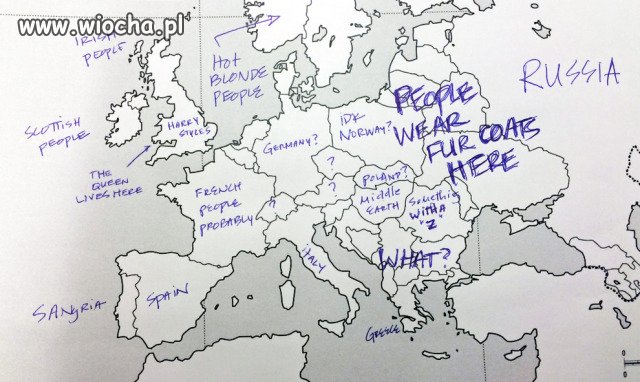 www.wiocha.pl
IRISH
PEOPLE
HOT
BLONDE
PEOPLE
RUSSIA
SCOTTISH
PEOPLE
HARRY
STYLES
THE
QUEEN
LIVES HERE
GERMANY?
IDK
NORWAY?
PEOPLE
WEAR
FUR COATS
HERE
?
?
?
POLAND?
MIDDLE
EARTH
SOMETHING
WITH A
"Z"
FRENCH
PEOPLE
PROBABLY
WHAT?
ITALY
SANGRIA
SPAIN
GREECE
0